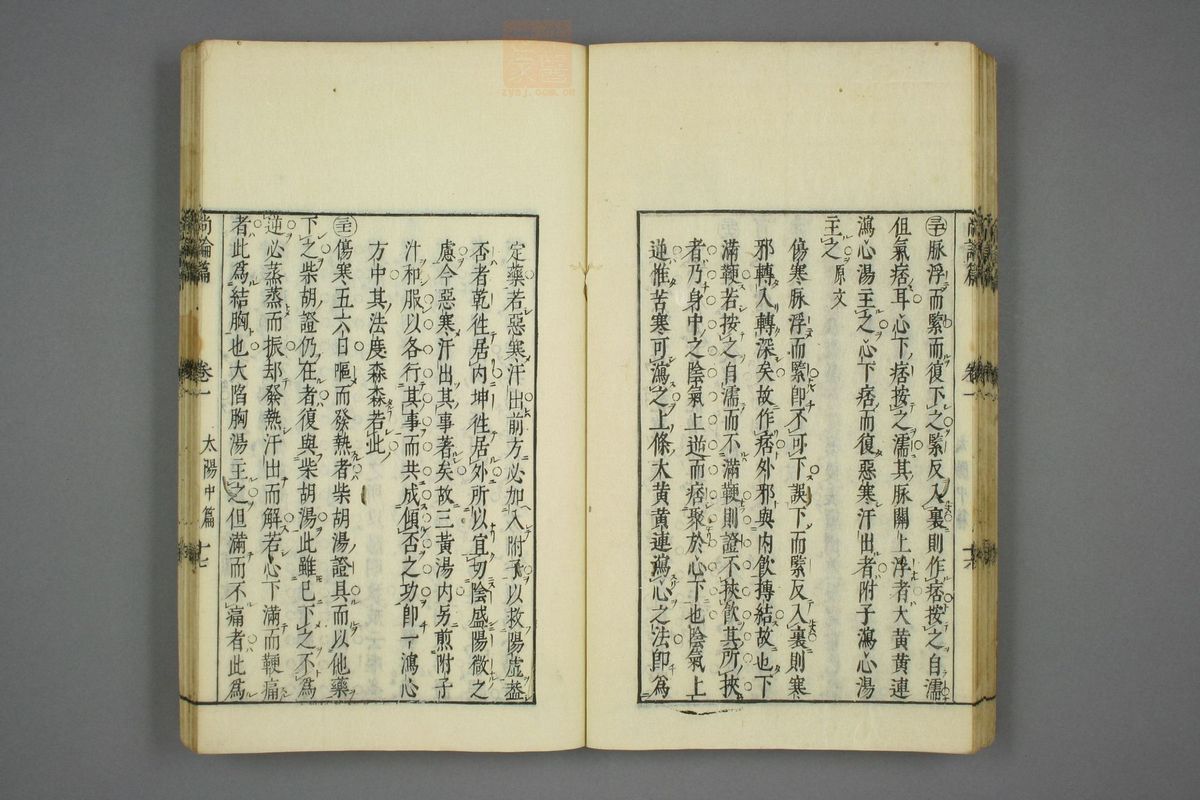 脉浮而緊而復下之緊反入裏則作痞按之自濡
但氣痞耳心下痞按之濡其脉關上浮者大黃黃連
瀉心湯主之心下痞而復惡寒汗出者附子瀉心湯
主之原文
傷寒脉浮而緊卽不可下誤下而緊反入裏則寒
邪轉入轉深矣故作痞外邪與内飲摶結故心下
滿鞕若按之自濡而不滿鞕則證不挾飲其所挾
者乃身中之陰氣上逆而痞聚於心下也陰氣上
逆惟苦寒可瀉之上條大黃黃連瀉心之法卽爲
定藥若惡寒汗出前方必加入附子以救陽虛葢
否者乾徃居内坤徃居外所以宜切陰盛陽微之
慮今惡寒汗出其事著矣故三黃湯内另煎附子
汁和服以各行其事而共成傾否之功卽一瀉心
方中其法度森森若此
傷寒五六日嘔而發熱者柴胡湯證具而以他藥
下之柴胡證仍在者復與柴胡湯此雖已下之不爲
逆必蒸蒸而振却發熱汗出而解若心下滿而鞕痛
者此爲結胸也大陷胸湯主之但滿而不痛者此爲
尚論篇 卷一 太陽中篇 十七